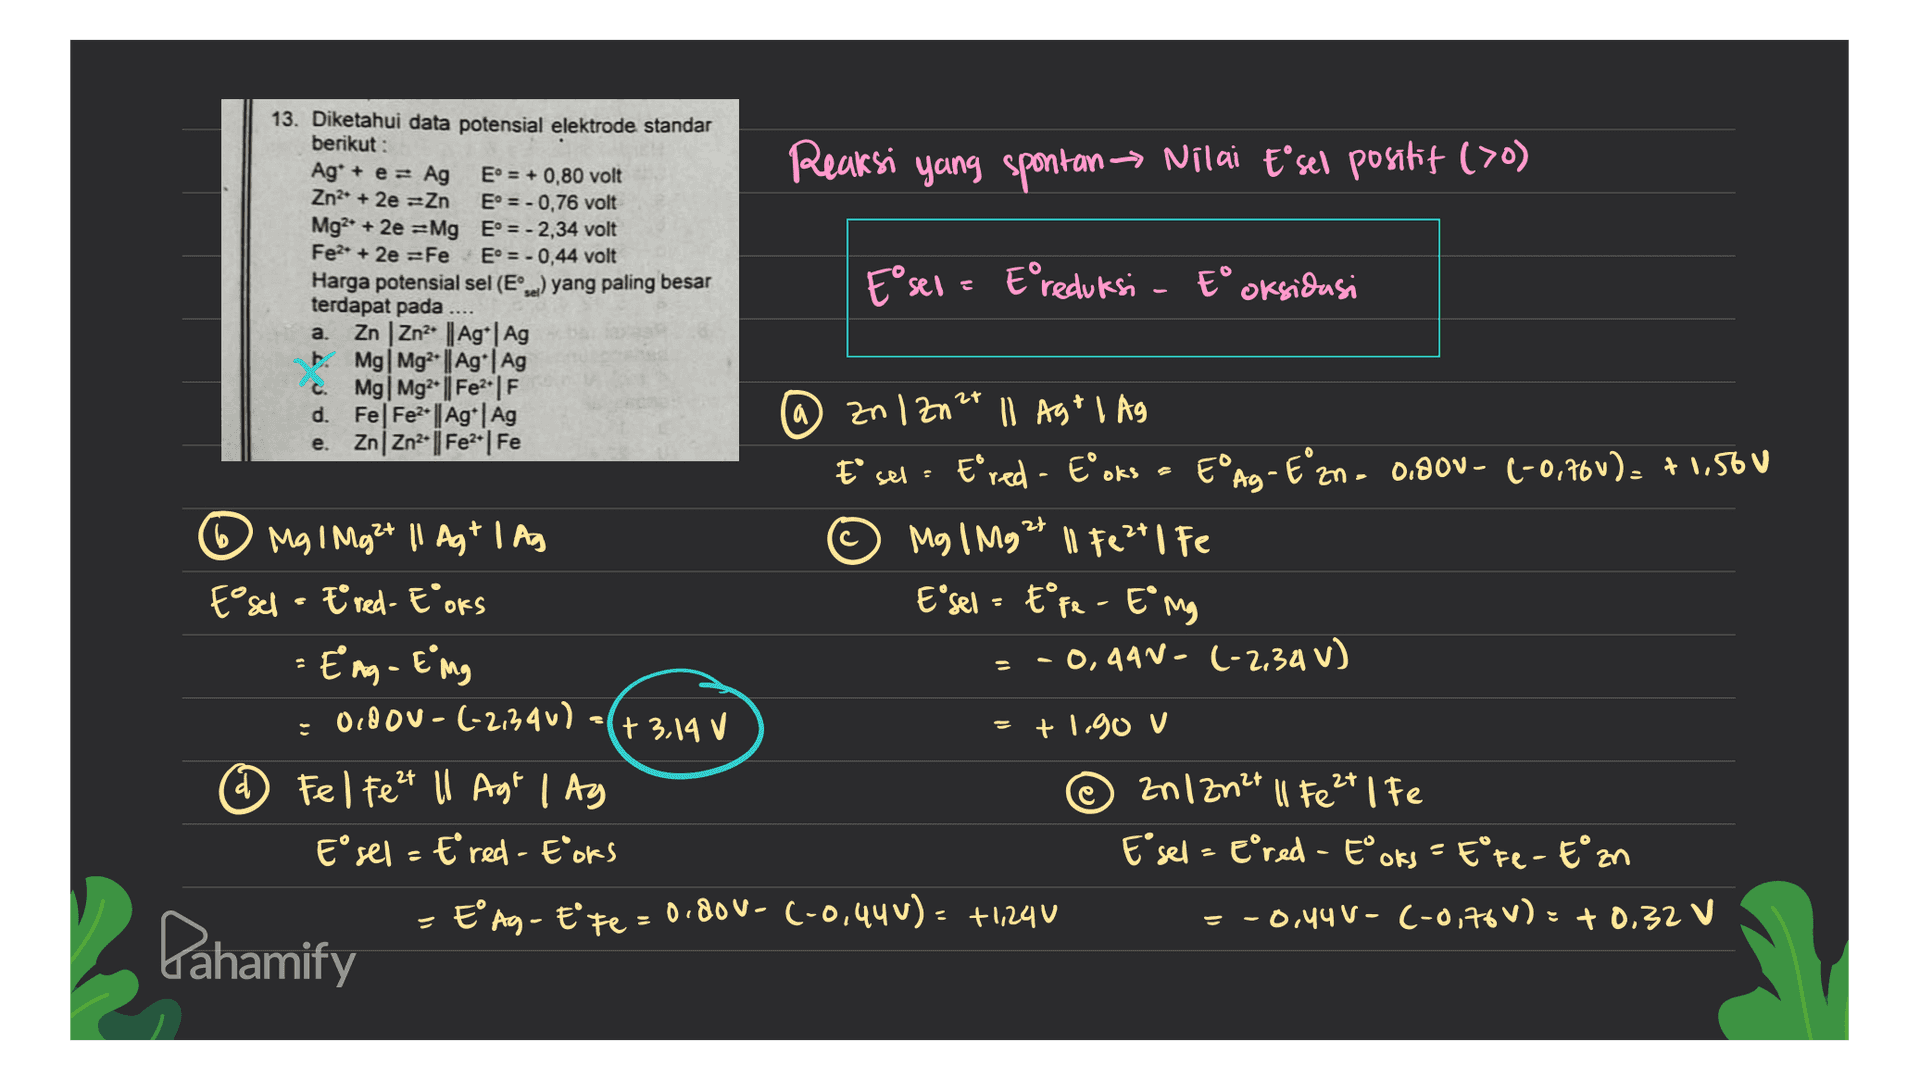 13. Diketahui data potensial elektrode standar
berikut :
Ag⁺ + e ⇌ Ag E° = + 0,80 volt
Zn²⁺ + 2e ⇌ Zn E° = - 0,76 volt
Mg²⁺ + 2e ⇌ Mg E° = - 2,34 volt
Fe²⁺ + 2e ⇌ Fe E° = - 0,44 volt
Harga potensial sel (E°sel) yang paling besar
terdapat pada ....
a. Zn | Zn²⁺ || Ag⁺ | Ag
b. Mg | Mg²⁺ || Ag⁺ | Ag
c. Mg | Mg²⁺ || Fe²⁺ | F
d. Fe | Fe²⁺ || Ag⁺ | Ag
e. Zn | Zn²⁺ || Fe²⁺ | Fe
Reaksi yang spontan → Nilai E°sel positif (>0)
E°sel = E°reduksi - E°oksidasi
a Zn | Zn²⁺ || Ag⁺ | Ag
E°sel = E°red - E°oks = E°Ag - E°Zn = 0,80V - (-0,76V) = +1,56 V
b Mg | Mg²⁺ || Ag⁺ | Ag
E°sel = E°red - E°oks
= E°Ag - E°Mg
= 0,80V - (-2,34V) = +3,14 V
c Mg | Mg²⁺ || Fe²⁺ | Fe
E°sel = E°Fe - E°Mg
= -0,44V - (-2,34V)
= +1,90 V
d Fe | Fe²⁺ || Ag⁺ | Ag
E°sel = E°red - E°oks
= E°Ag - E°Fe = 0,80V - (-0,44V) = +1,24V
e Zn | Zn²⁺ || Fe²⁺ | Fe
E°sel = E°red - E°oks = E°Fe - E°Zn
= -0,44V - (-0,76V) = +0,32 V
Pahamify